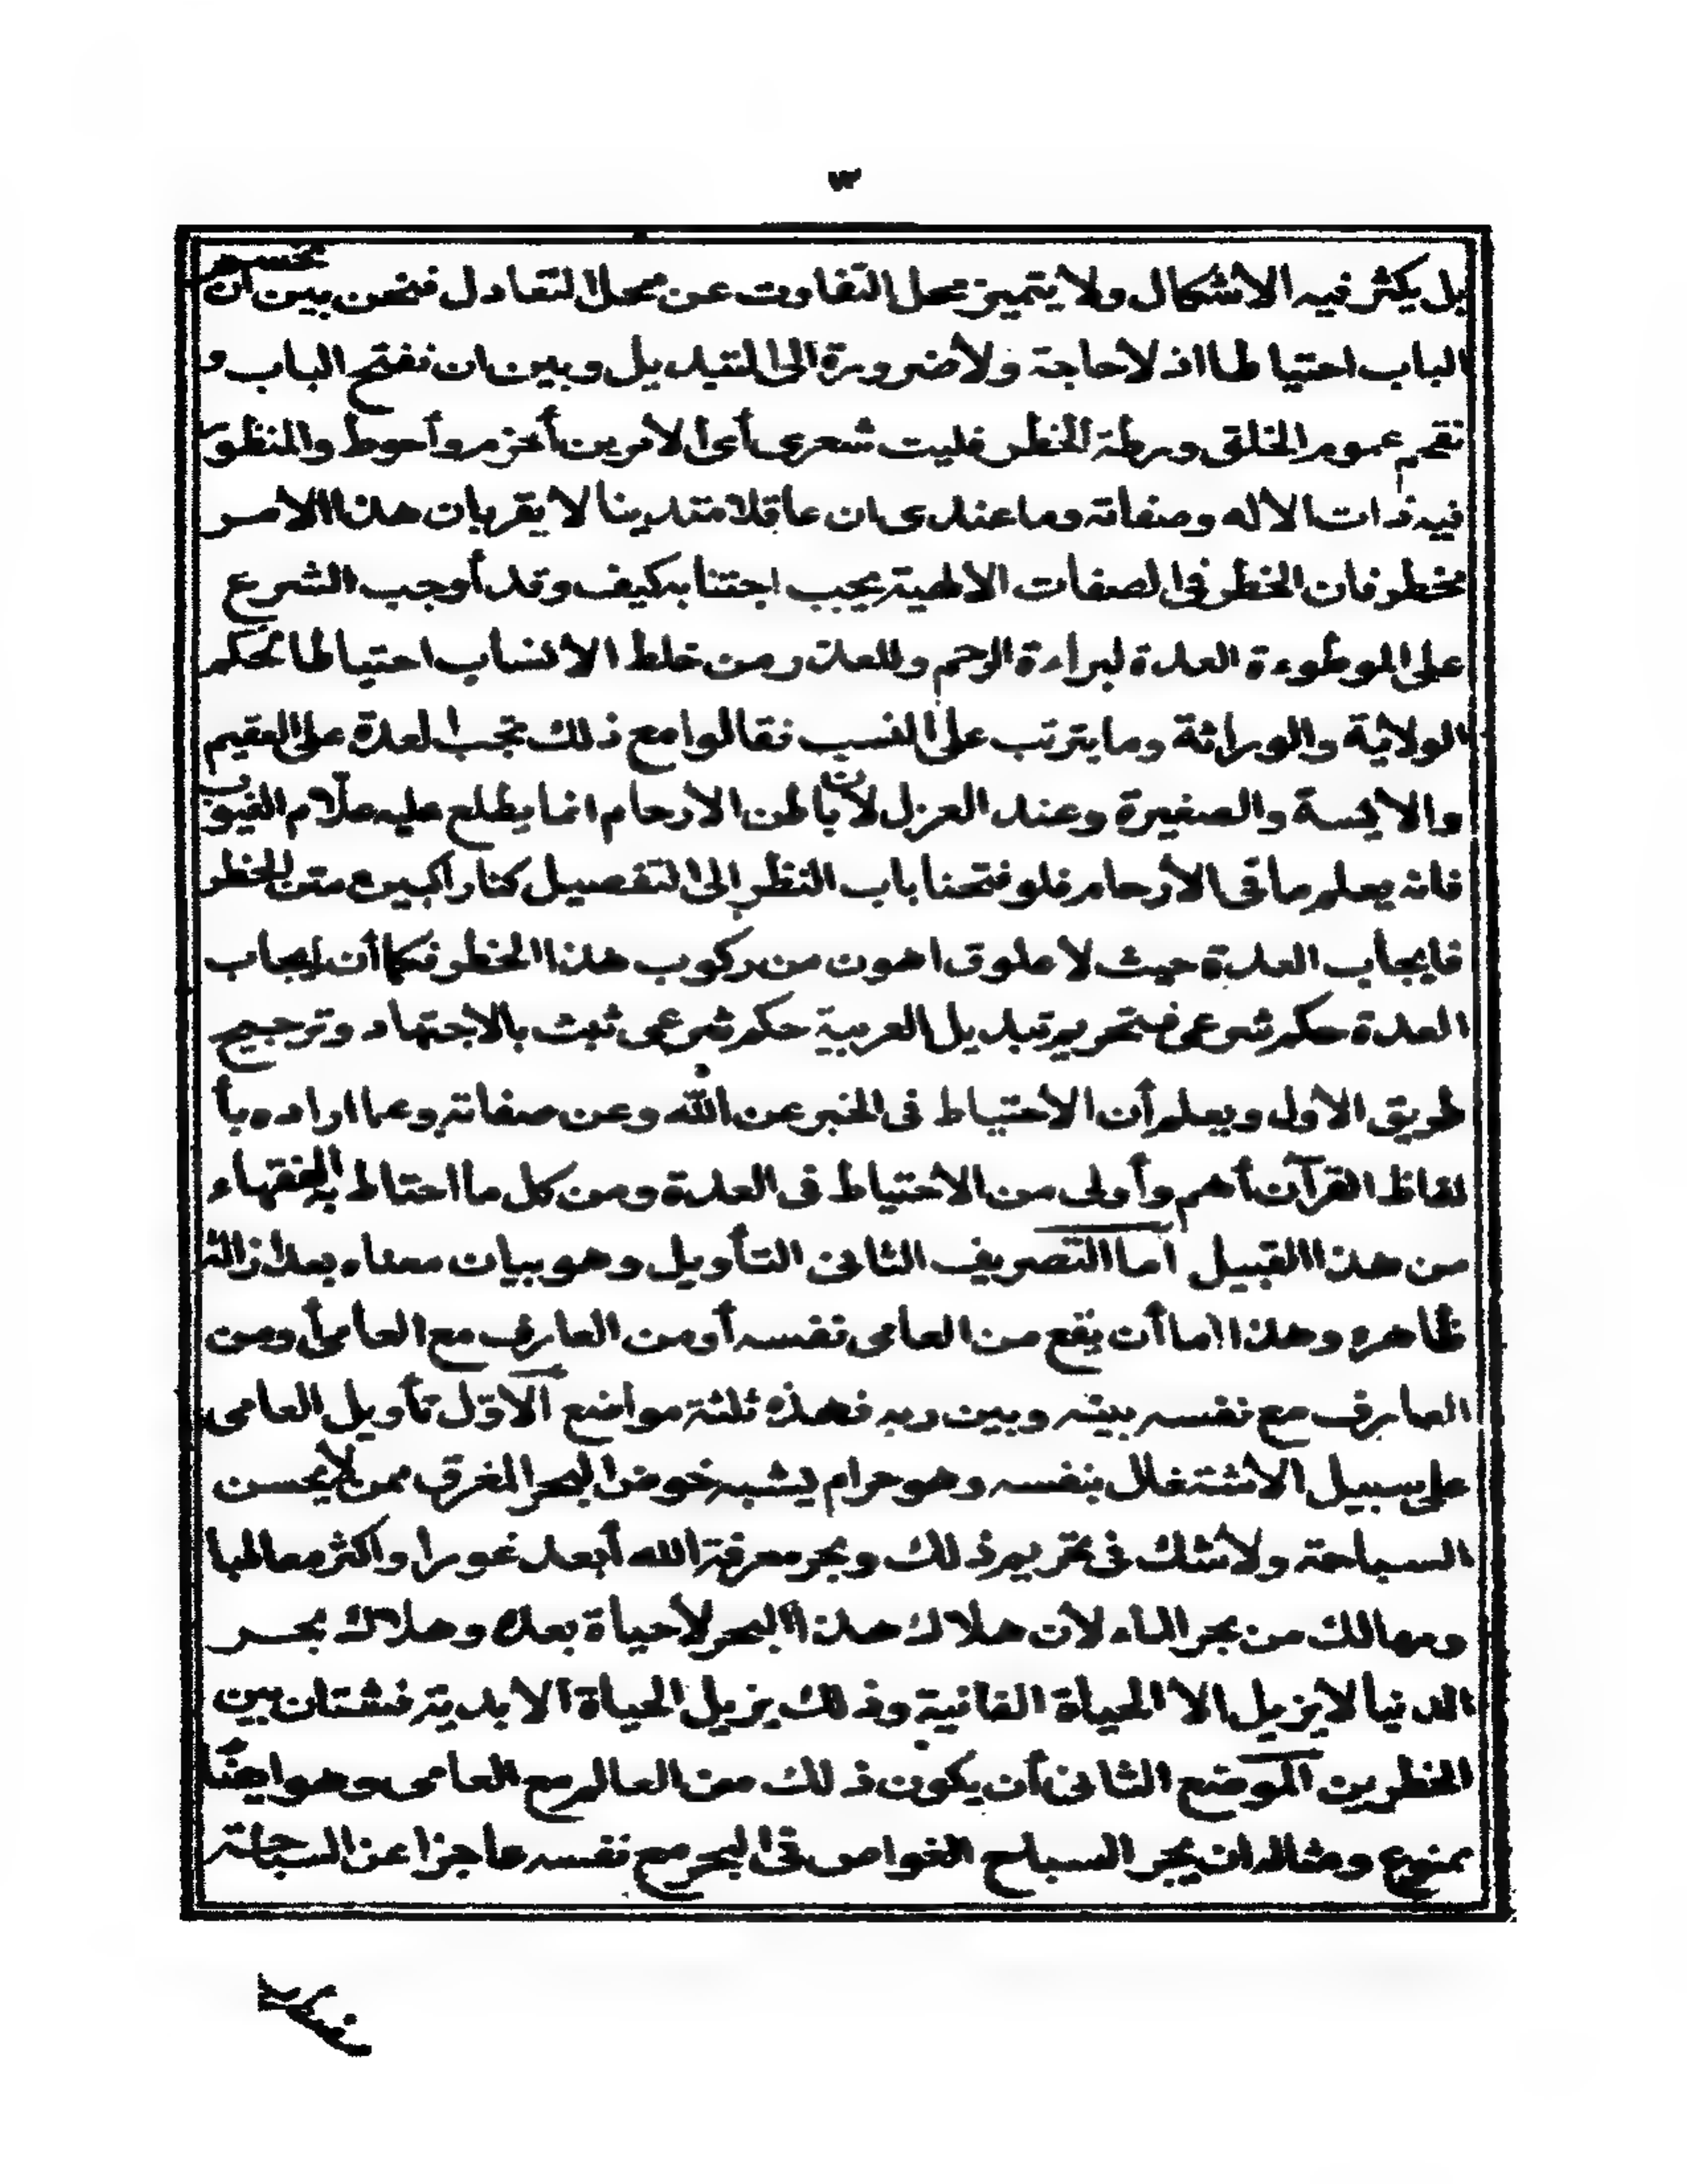 ٣
بل يكثر فيه الاشكال ولا يتميز محل التفاوت عن محل التعادل فنحن بين ان نحسم
الباب احتياطا اذ لا حاجة ولا ضرورة الى التبديل وبين ان نفتح الباب و
نقحم عموم الخلق ورطة الخطر فليت شعرى أى الامرين أحزم وأحوط والمنظور
فيه ذات الاله وصفاته وما عندى ان عاقلا متدينا لا يقر بان هذا الامر
مخطر فان الخطر فى الصفات الالهية يجب اجتنابه كيف وقد أوجب الشرع
على الموطوءة العدة لبراءة الرحم وللعذر من خلط الانساب احتياطا لحكم
الولاية والوراثة وما يترتب على النسب فقالوا مع ذلك تجب العدة على العقيم
والايسة والصغيرة وعند العزل لان باطن الارحام انما يطلع عليه علّام الغيوب
فانه يعلم ما فى الأرحام فلو فتحنا باب النظر الى التفصيل كنا راكبين متن الخطر
فايجاب العدة حيث لا علوق اهون من ركوب هذا الخطر فكما أن ايجاب
العدة حكم شرعى فتحريم تبديل العربية حكم شرعى ثبت بالاجتهاد وترجيح
طريق الاول ويعلم أن الاحتياط فى الخبر عن الله وعن صفاته وعما اراده بأ
لفاظ القرآن أهم وأولى من الاحتياط فى العدة ومن كل ما احتاط به الفقهاء
من هذا القبيل اما التصريف الثانى التأويل وهو بيان معناه بعد ازالة
ظاهره وهذا اما أن يقع من العامى نفسه أو من العارف مع العامى أو من
العارف مع نفسه بينه وبين ربه فهذه ثلثة مواضع الاوّل تأويل العامى
على سبيل الاشتغال بنفسه وهو حرام يشبه خوض البحر المغرق ممن لا يحسن
السباحة ولا شك فى تحريم ذلك وبحر معرفة الله أبعد غورا واكثر معاطبا
ومهالك من بحر الماء لأن هلاك هذا البحر لا حياة بعده وهلاك بحر
الدنيا لا يزيل الا الحياة الفانية وذلك يزيل الحياة الابدية فشتان بين
الخطرين الموضع الثانى أن يكون ذلك من العالم مع العامى وهو ايضًا
ممنوع ومثاله ان يجر السباح الغواص فى البحر مع نفسه عاجزا عن السباحة